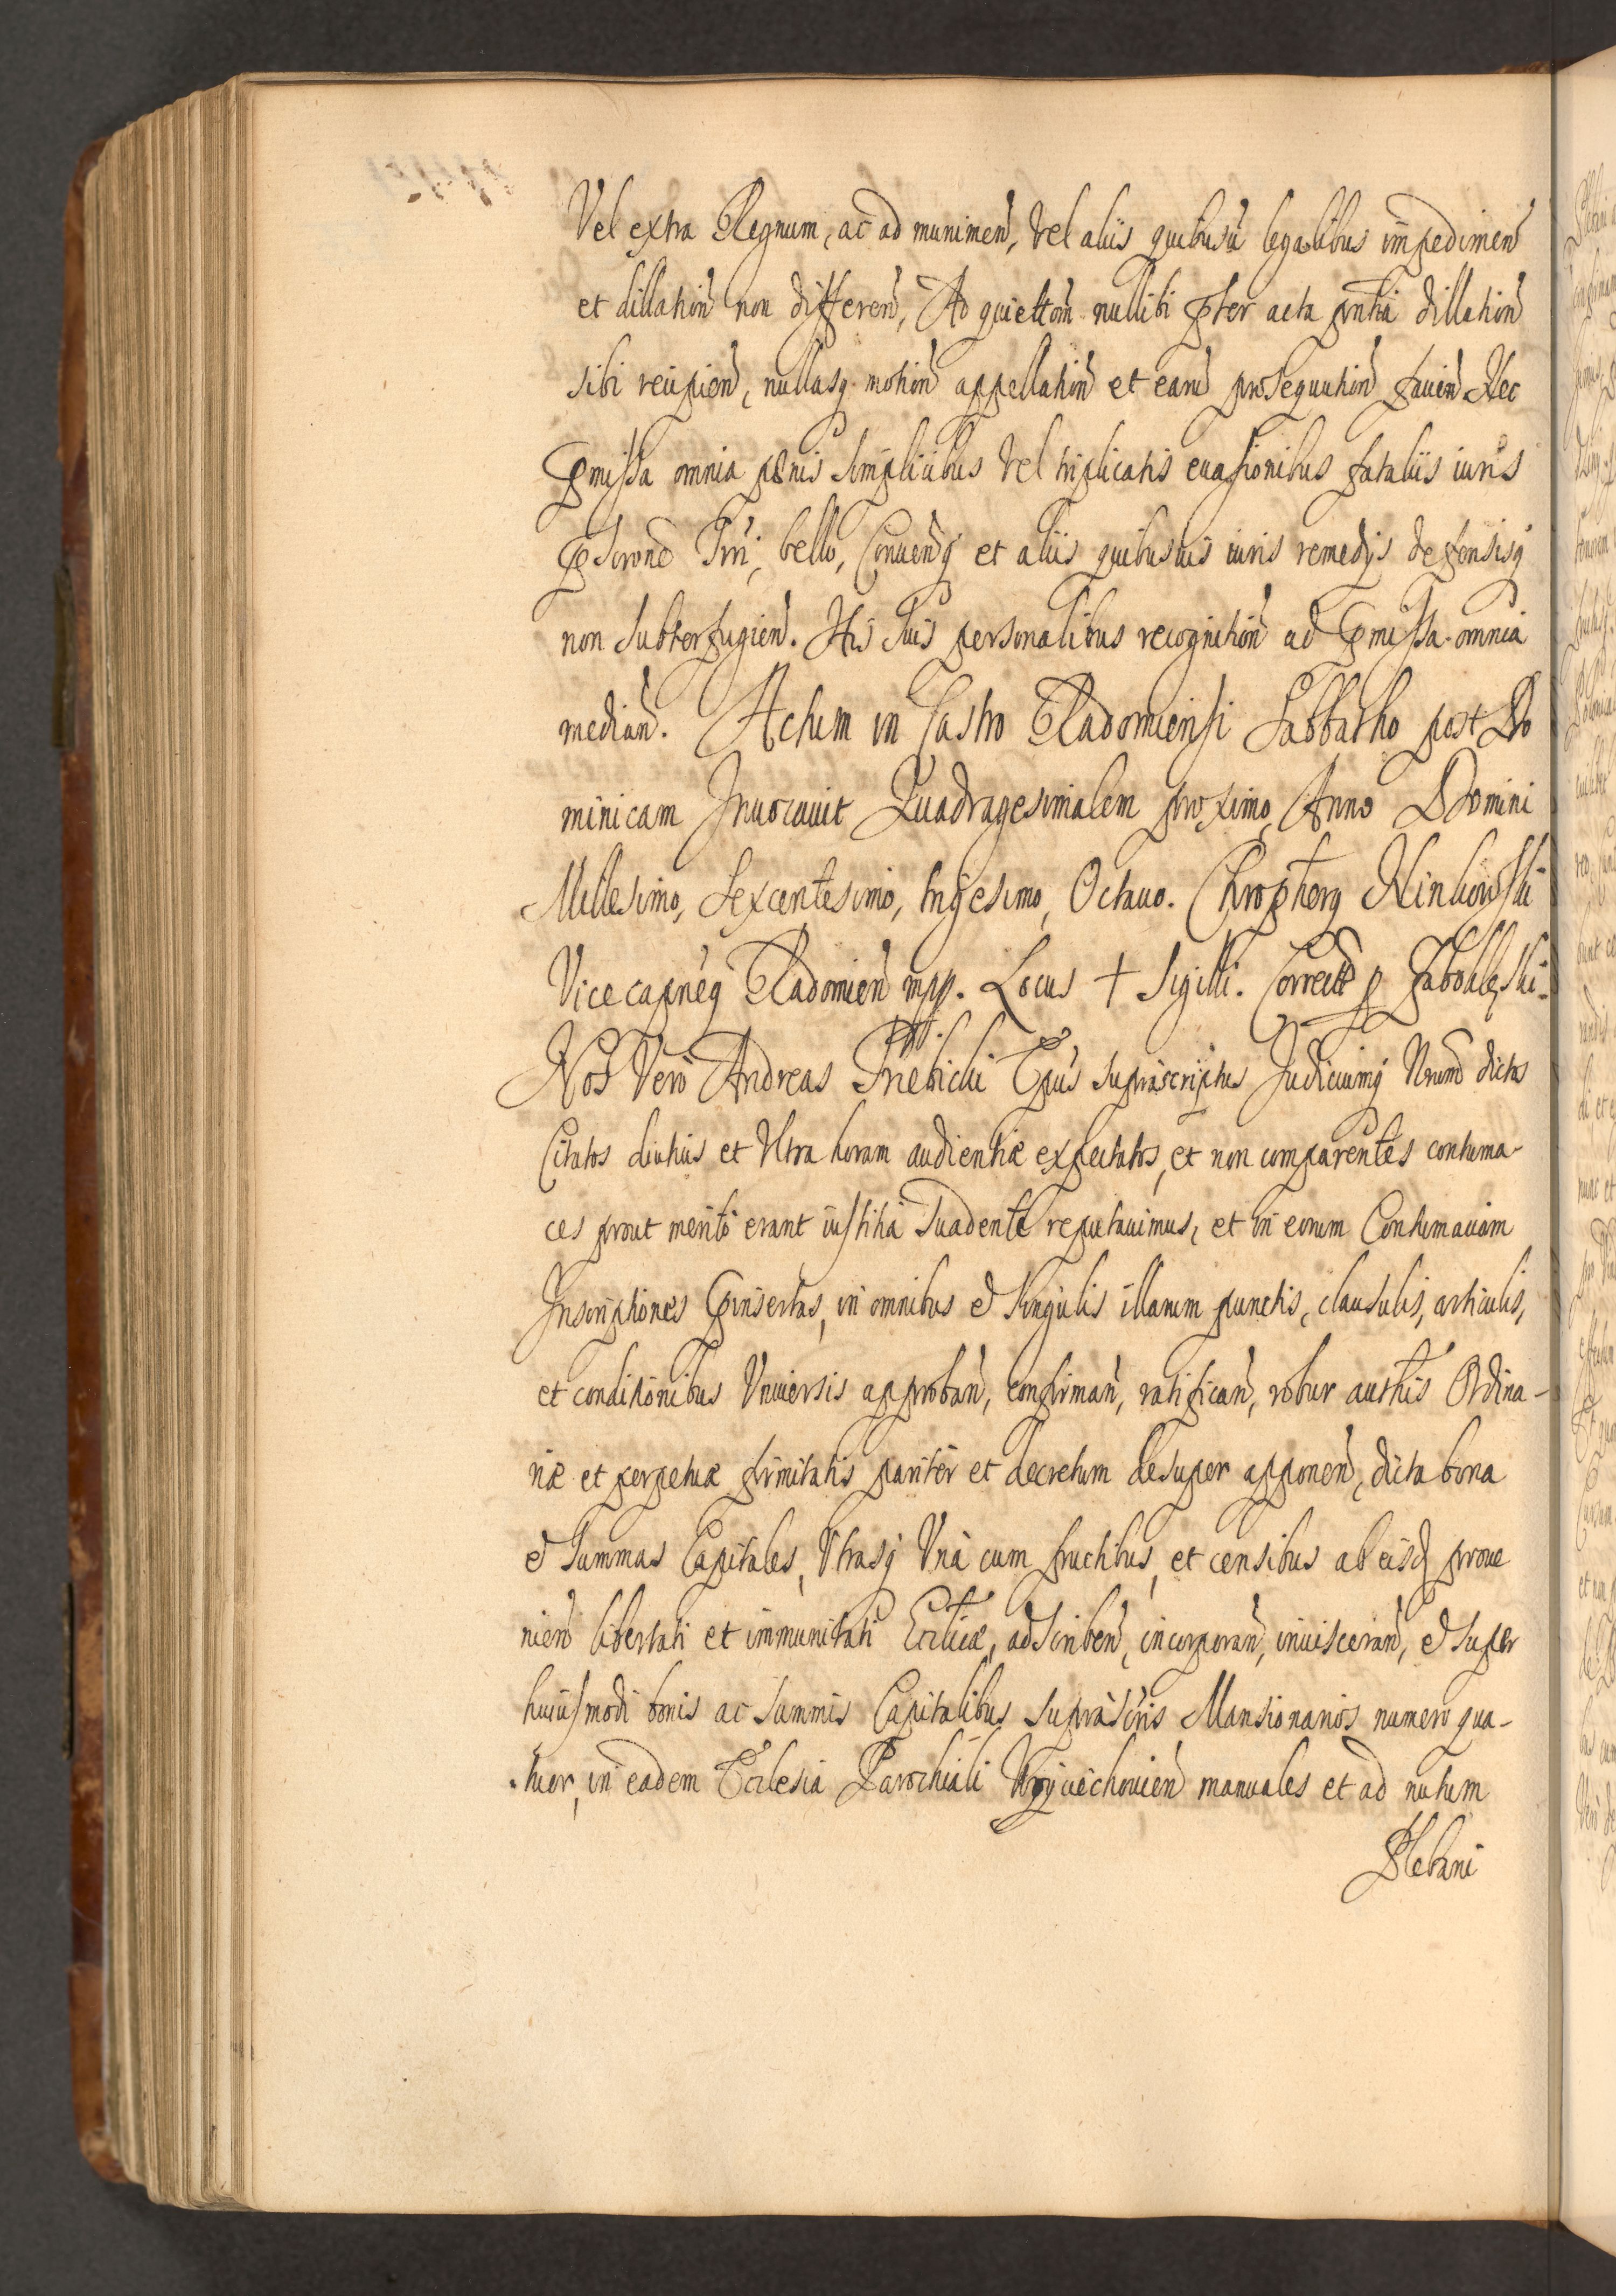 Vel extra Regnum, ac ad munimen̄, vel aliis quibusū legalibus impedimen̄
et dillation̄ non differen̄, Ad quiettōm nullibi pter acta pntia dillation̄
sibi recipien̄, nullasq motion̄ appellation̄ et earū prosequution̄ facien̄ Nec
pmissa omnia pœnis simplicibus vel triplicatis euasionibus fataliis iuris
pscrone Trri, bello, Conuenq et aliis quibusuis iuris remedijs defensisq
non subterfugien̄. His suis personalibus recognition̄ ad pmissa omnia
median̄. Actum in Castro Radomiensi Sabbatho post Do
minicam Inuocauit Quadragesimalem proximo, Anno Domini
Millesimo, Sexcentesimo, trigesimo, Octauo. Chropherg
Vicecapneg Radomien̄ mpp. Locus + Sigilli. Correctt p
Nos Vero Andreas Trebicki Epūs suprascriptus Judiciumq Nrum dictos
Citatos diutius et Ultra horam audientiæ expectatos, et non comparentes contuma-
ces prout merito erant iustitia Suadente reputauimus, et in eorum Contumaciam
Inscriptiones pinsertas, in omnibus et Singulis illarum punctis, clausulis, articulis,
et conditionibus Vniuersis approban̄, confirman̄, ratifican̄, robur authtis Ordina-
riæ et perpetuæ firmitatis pariter et decretum desuper apponen̄, dicta bona
et Summas Capitales, Utrasq Una cum fructibus, et censibus ab eisd proue
nien̄ libertati et immunitati Eccliæ, adscriben̄, incorporan̄, inuisceran̄, et super
huiusmodi bonis ac Summis Capitalibus suprascris Mansionarios numero qua-
tuor, in eadem Ecclesia Parochiali Woyciechouien̄ manuales et ad nutum
Plebani